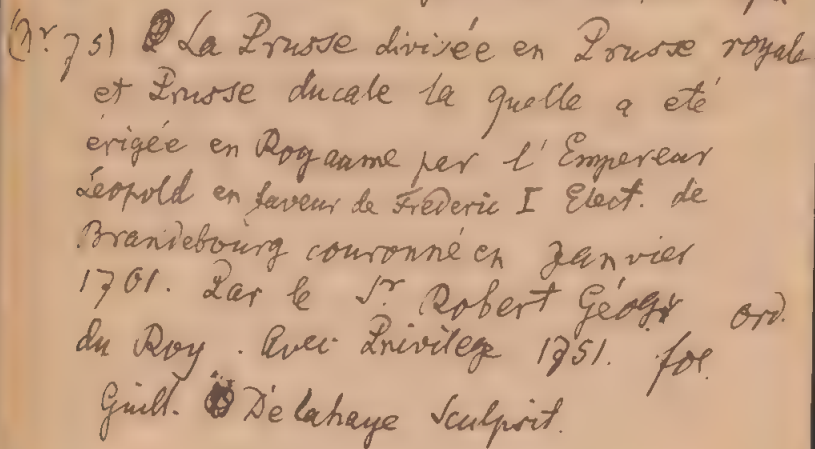 (Nr. 75) La Prusse divisée en Prusse royale
et Prusse ducale la quelle a eté
érigée en Royaume par l'Empereur
Léopold en faveur de Frederic I Elect. de
Brandebourg couronné en Janvier
1701. Par le Sr Robert Géogr ord.
du Roy. Avec Privilege 1751. fol.
Guill. Delahaye Sculpsit.